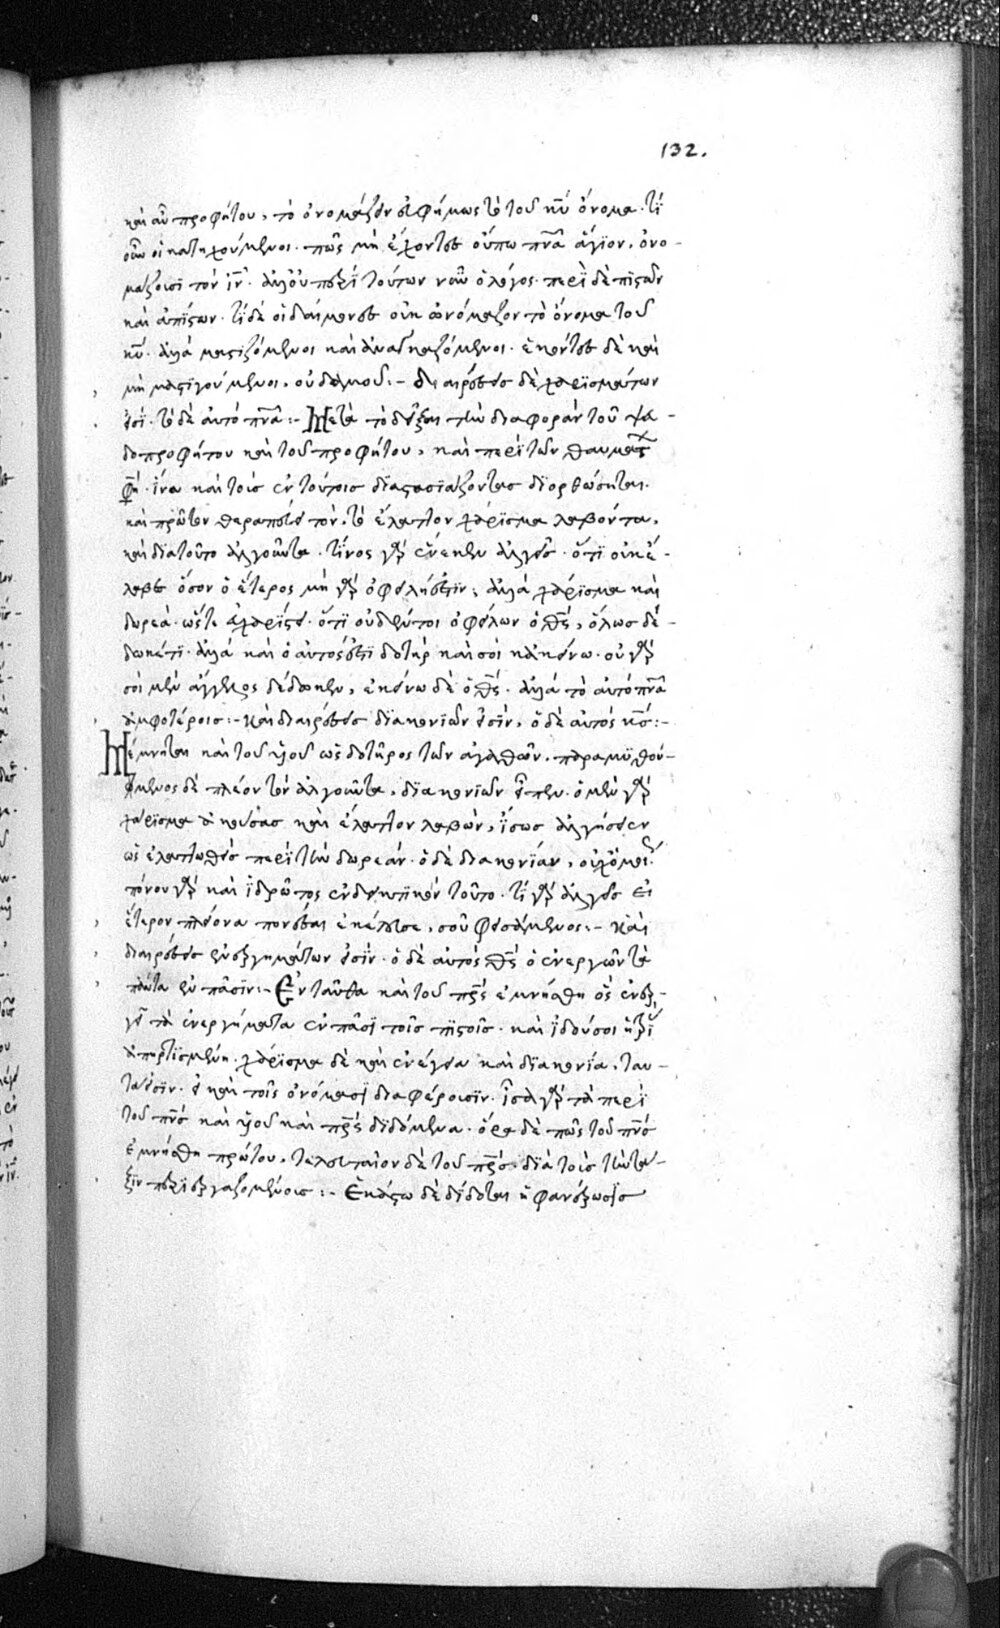 132.
καὶ αὖ προφήτου, τὸ ὀνομάζειν εὐφήμως τὸ τοῦ κυ̅ ὄνομα. τί
οὖν οἱ κατηχούμενοι. πῶς μὴ ἔχοντες οὔπω πνα̅ ἅγϊον, ὀνο-
μάζουσϊ τὸν ιν̅. ἀλλ' οὐ περὶ τούτων νῦν ὁ λόγος. περὶ δὲ πιστῶν
καὶ ἀπίστων. τί δὲ οἱ δαίμονες οὐκ ὠνόμαζον τὸ ὄνομα τοῦ
κυ̅. ἀλλὰ μαστιζόμενοι καὶ ἀναγκαζόμενοι. ἑκόντες δὲ καὶ
μὴ μαστιγούμενοι, οὐδαμοῦ:- διαιρέσεις δὲ χαρισμάτων
εἰσί. τὸ δὲ αὐτὸ πνα̅:- Μετὰ τὸ δεῖξαι τὴν διαφορὰν τοῦ ψευ-
δοπροφήτου καὶ τοῦ προφήτου, καὶ περὶ τῶν θαυμάτ
φη. ἵνα καὶ τοὺς ἐν τούτοις διαστασιάζοντας διορθώσηται.
καὶ πρῶτον θεραπεύει τὸν τὸ ἔλαττον χάρισμα λαβόντα,
καὶ διατοῦτο ἀλγοῦντα. τίνος γὰρ ἕνεκεν ἀλγεῖς. ὅτι οὐκ ἔ-
λαβες ὅσον ὁ ἕτερος μὴ γὰρ ὀφειλή ἐστϊν; ἀλλὰ χάρισμα καὶ
δωρεά. ὥστε εὐχαρίστει. ὅτι οὐδὲν τοι ὀφείλων ὁ θς̅, ὅλως δέ-
δωκέ τι. ἀλλὰ καὶ ὁ αὐτός ἐστϊ δοτὴρ καὶ σοὶ κἀκείνω. οὐ γὰρ
σοὶ μὲν ἄγγελος δέδωκεν, ἐκείνω δὲ ὁ θς̅. ἀλλὰ τὸ αὐτὸ πνα̅
ἀμφοτέροις:- Καὶ διαιρέσεις διακονιῶν εἰσὶν, ὁ δὲ αὐτὸς κς̅:-
Μέμνηται καὶ τοῦ υἱοῦ ὡς δοτῆρος τῶν ἀγαθῶν. παραμυθού-
μενος δὲ πλέον τὸν ἀλγοῦντα, διακονιῶν εἶπεν. ὁ μὲν γὰρ
χάρισμα ἀκούσας καὶ ἔλαττον λαβὼν, ἴσως ἀλγήσειεν
ὡς ἐλαττωθεὶς περὶ τὴν δωρεάν. ὁ δὲ διακονίαν, οὐχόμοι.
πόνου γὰρ καὶ ἱδρῶτος ἐνδεικτικὸν τοῦτο. τί γὰρ ἀλγεῖς εἰ
ἕτερον πλείονα πονέσαι ἐκέλευσε, σοῦ φεισάμενος:- Καὶ
διαιρέσεις ἐνεργημάτων εἰσὶν. ὁ δὲ αὐτὸς θς̅ ὁ ἐνεργῶν τὰ
πάντα ἐν πᾶσϊν:- Ἐνταῦθα καὶ τοῦ πρς̅ ἐμνήσθη ὃς ἐνερ-
γεῖ τὰ ἐνεργήματα ἐν πᾶσϊ τοῖς πιστοῖς. καὶ ἰδού σοι ἡ τρι
ἀπηρτισμένη. χάρισμα δὲ καὶ ἐνέργεια καὶ διακονία, ταυ-
τά εἰσιν. εἰ καὶ τοῖς ὀνόμασϊ διαφέρουσιν. ἴσα γὰρ τὰ περὶ
τοῦ πνς̅ καὶ υἱοῦ καὶ πρς̅ διδόμενα. ὅρα δὲ πῶς τοῦ πνς̅
ἐμνήσθη πρώτου, τελευταῖον δὲ τοῦ πρς̅. διὰ τοὺς τὴν τά-
ξιν περιεργαζομένους:- Ἑκάστω δὲ δίδοται ἡ φανέρωσϊς